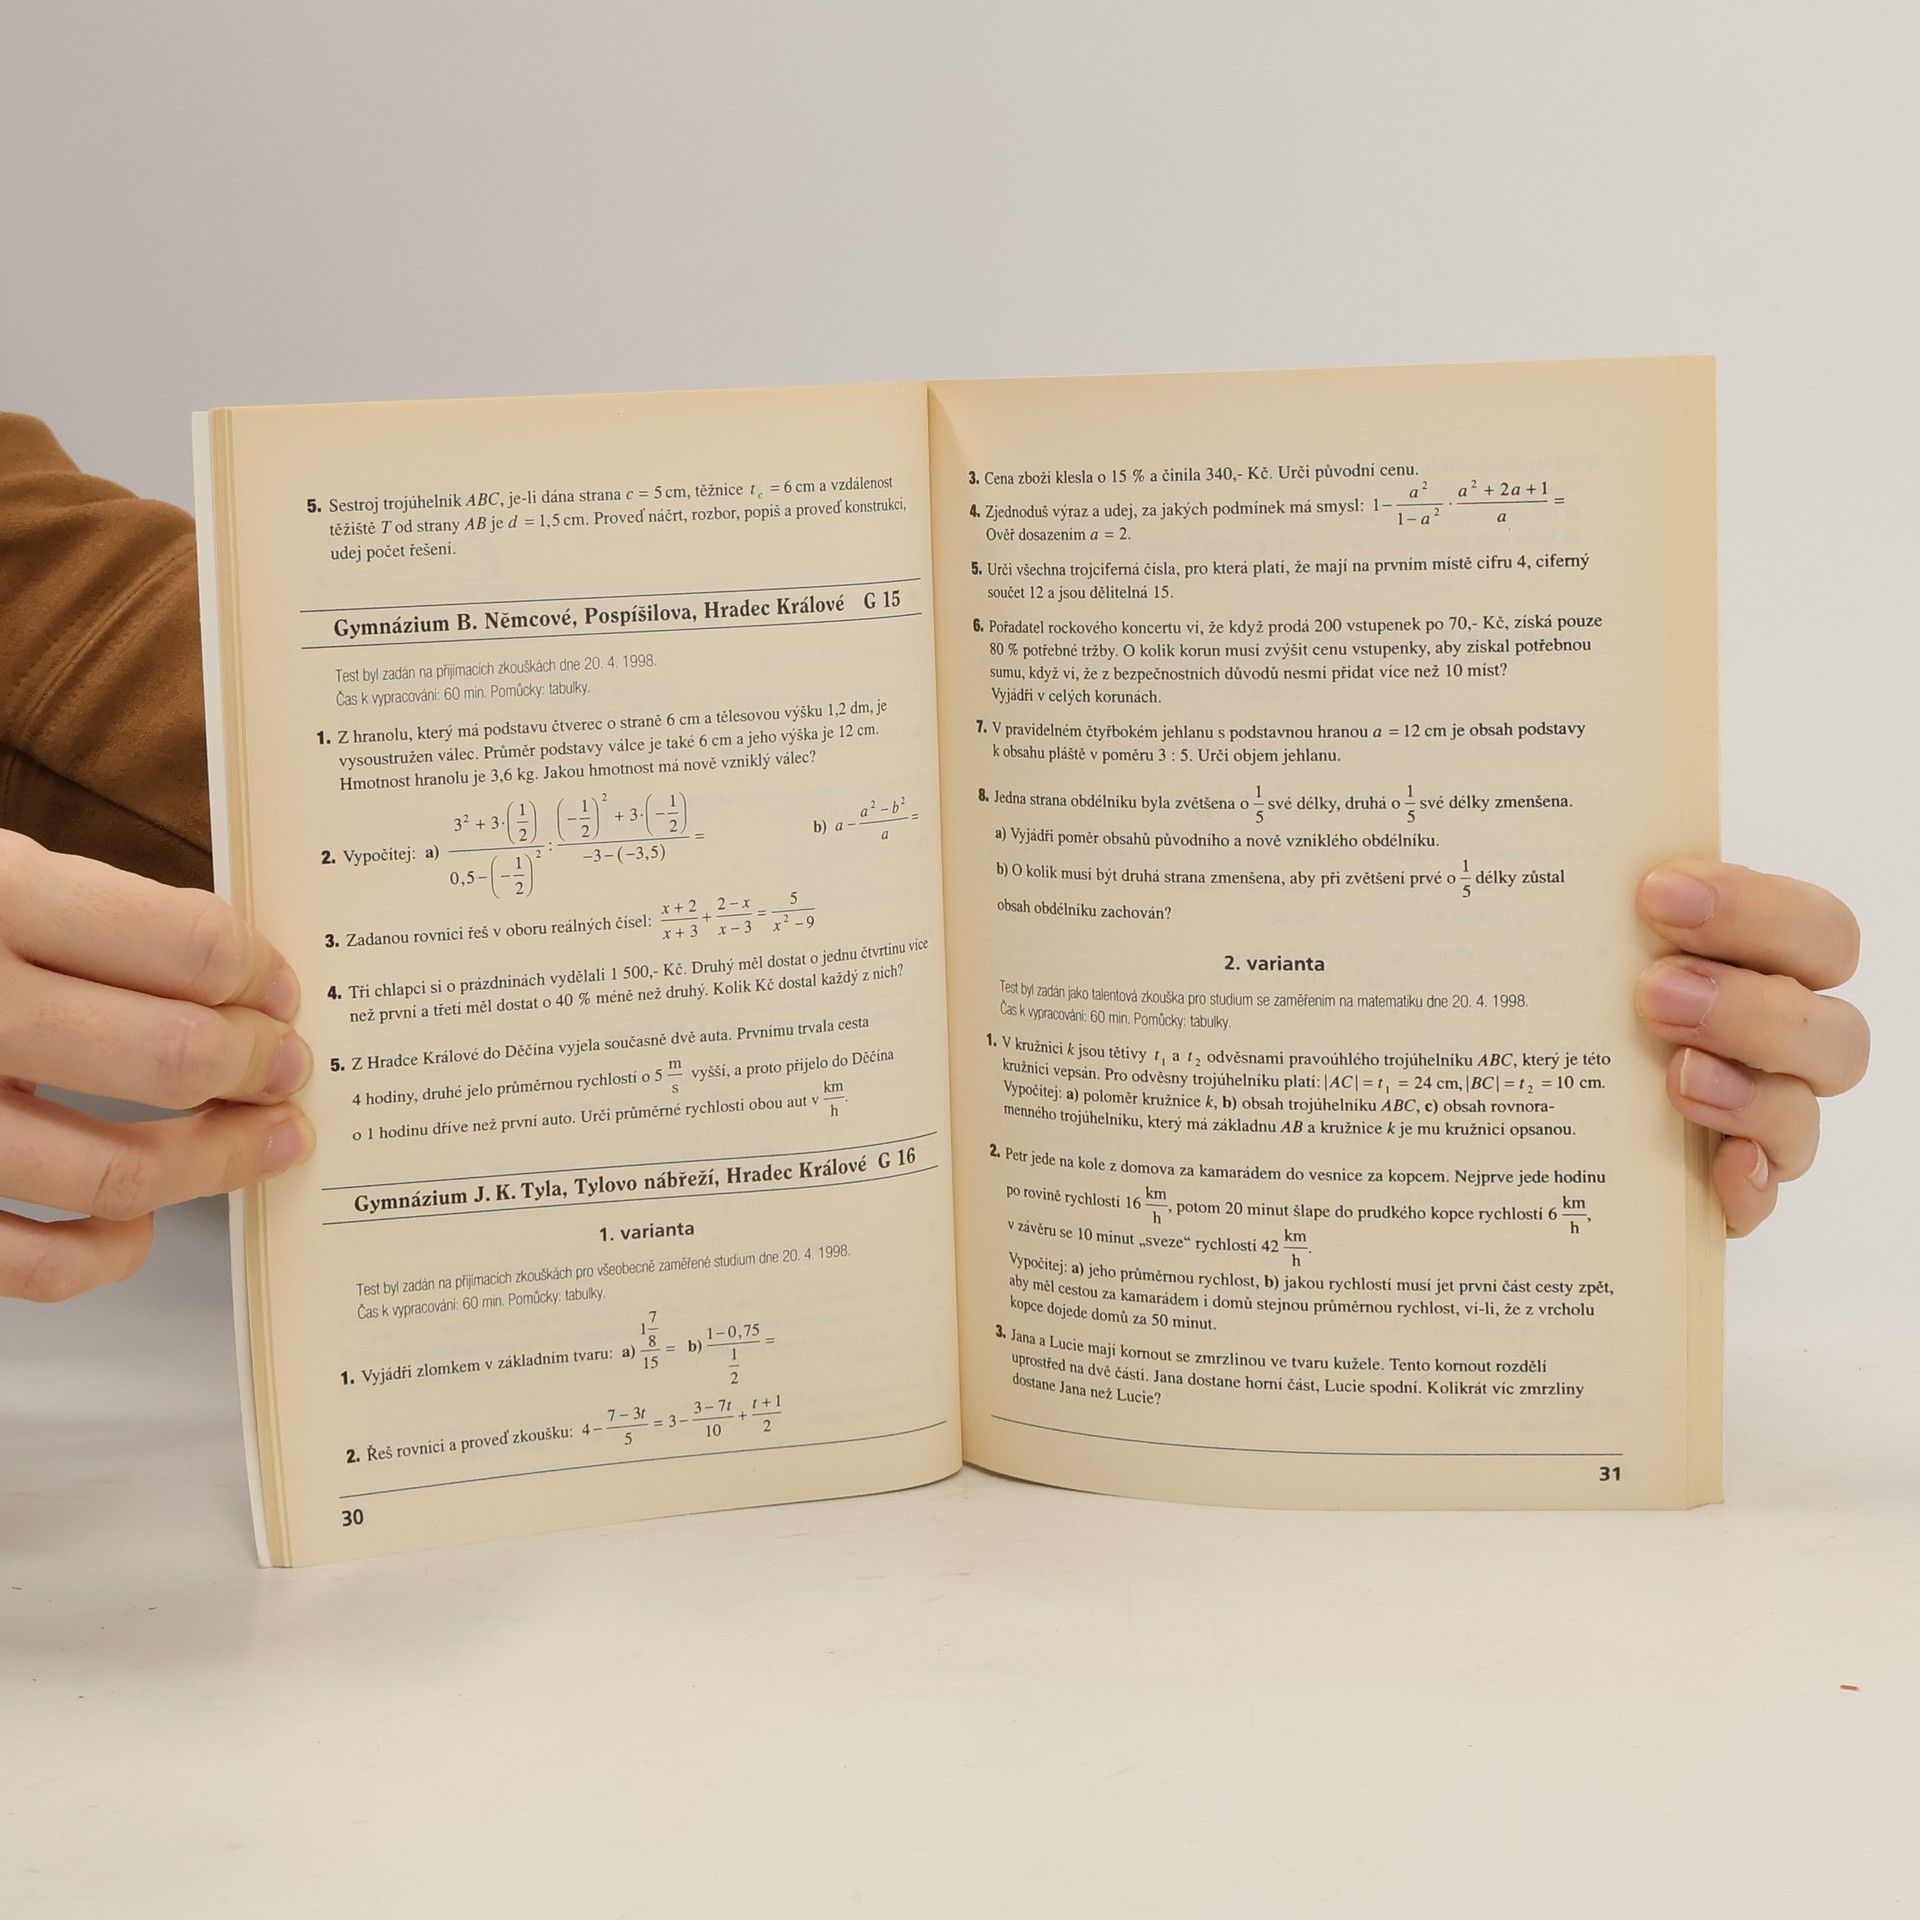 5. Sestroj trojúhelník ABC, je-li dána strana c = 5 cm, těžnice t_c = 6 cm a vzdálenost
těžiště T od strany AB je d = 1,5 cm. Proveď náčrt, rozbor, popiš a proveď konstrukci,
udej počet řešení.
Gymnázium B. Němcové, Pospíšilova, Hradec Králové G 15
Test byl zadán na přijímacích zkouškách dne 20. 4. 1998.
Čas k vypracování: 60 min. Pomůcky: tabulky.
1. Z hranolu, který má podstavu čtverec o straně 6 cm a tělesovou výšku 1,2 dm, je
vysoustružen válec. Průměr podstavy válce je také 6 cm a jeho výška je 12 cm.
Hmotnost hranolu je 3,6 kg. Jakou hmotnost má nově vzniklý válec?
2. Vypočítej: a) (3² + 3·(1/2))/(0,5−(−1/2)²) : ((−1/2)² + 3·(−1/2))/(−3−(−3,5)) = b) a − (a²−b²)/a =
3. Zadanou rovnici řeš v oboru reálných čísel: (x+2)/(x+3) + (2−x)/(x−3) = 5/(x²−9)
4. Tři chlapci si o prázdninách vydělali 1 500,- Kč. Druhý měl dostat o jednu čtvrtinu více
než první a třetí měl dostat o 40 % méně než druhý. Kolik Kč dostal každý z nich?
5. Z Hradce Králové do Děčína vyjela současně dvě auta. Prvnímu trvala cesta
4 hodiny, druhé jelo průměrnou rychlostí o 5 m/s vyšší, a proto přijelo do Děčína
o 1 hodinu dříve než první auto. Urči průměrné rychlosti obou aut v km/h.
Gymnázium J. K. Tyla, Tylovo nábřeží, Hradec Králové G 16
1. varianta
Test byl zadán na přijímacích zkouškách pro všeobecně zaměřené studium dne 20. 4. 1998.
Čas k vypracování: 60 min. Pomůcky: tabulky.
1. Vyjádři zlomkem v základním tvaru: a) (1 7/8)/15 = b) (1−0,75)/(1/2) =
2. Řeš rovnici a proveď zkoušku: 4 − (7−3t)/5 = 3 − (3−7t)/10 + (t+1)/2
30
3. Cena zboží klesla o 15 % a činila 340,- Kč. Urči původní cenu.
4. Zjednoduš výraz a udej, za jakých podmínek má smysl: 1 − a²/(1−a²) · (a²+2a+1)/a =
Ověř dosazením a = 2.
5. Urči všechna trojciferná čísla, pro která platí, že mají na prvním místě cifru 4, ciferný
součet 12 a jsou dělitelná 15.
6. Pořadatel rockového koncertu ví, že když prodá 200 vstupenek po 70,- Kč, získá pouze
80 % potřebné tržby. O kolik korun musí zvýšit cenu vstupenky, aby získal potřebnou
sumu, když ví, že z bezpečnostních důvodů nesmí přidat více než 10 míst?
Vyjádři v celých korunách.
7. V pravidelném čtyřbokém jehlanu s podstavnou hranou a = 12 cm je obsah podstavy
k obsahu pláště v poměru 3 : 5. Urči objem jehlanu.
8. Jedna strana obdélníku byla zvětšena o 1/5 své délky, druhá o 1/5 své délky zmenšena.
a) Vyjádři poměr obsahů původního a nově vzniklého obdélníku.
b) O kolik musí být druhá strana zmenšena, aby při zvětšení prvé o 1/5 délky zůstal
obsah obdélníku zachován?
2. varianta
Test byl zadán jako talentová zkouška pro studium se zaměřením na matematiku dne 20. 4. 1998.
Čas k vypracování: 60 min. Pomůcky: tabulky.
1. V kružnici k jsou tětivy t₁ a t₂ odvěsnami pravoúhlého trojúhelníku ABC, který je této
kružnici vepsán. Pro odvěsny trojúhelníku platí: |AC| = t₁ = 24 cm, |BC| = t₂ = 10 cm.
Vypočítej: a) poloměr kružnice k, b) obsah trojúhelníku ABC, c) obsah rovnora-
menného trojúhelníku, který má základnu AB a kružnice k je mu kružnicí opsanou.
2. Petr jede na kole z domova za kamarádem do vesnice za kopcem. Nejprve jede hodinu
po rovině rychlostí 16 km/h, potom 20 minut šlape do prudkého kopce rychlostí 6 km/h,
v závěru se 10 minut „sveze“ rychlostí 42 km/h.
Vypočítej: a) jeho průměrnou rychlost, b) jakou rychlostí musí jet první část cesty zpět,
aby měl cestou za kamarádem i domů stejnou průměrnou rychlost, ví-li, že z vrcholu
kopce dojede domů za 50 minut.
3. Jana a Lucie mají kornout se zmrzlinou ve tvaru kužele. Tento kornout rozdělí
uprostřed na dvě části. Jana dostane horní část, Lucie spodní. Kolikrát víc zmrzliny
dostane Jana než Lucie?
31